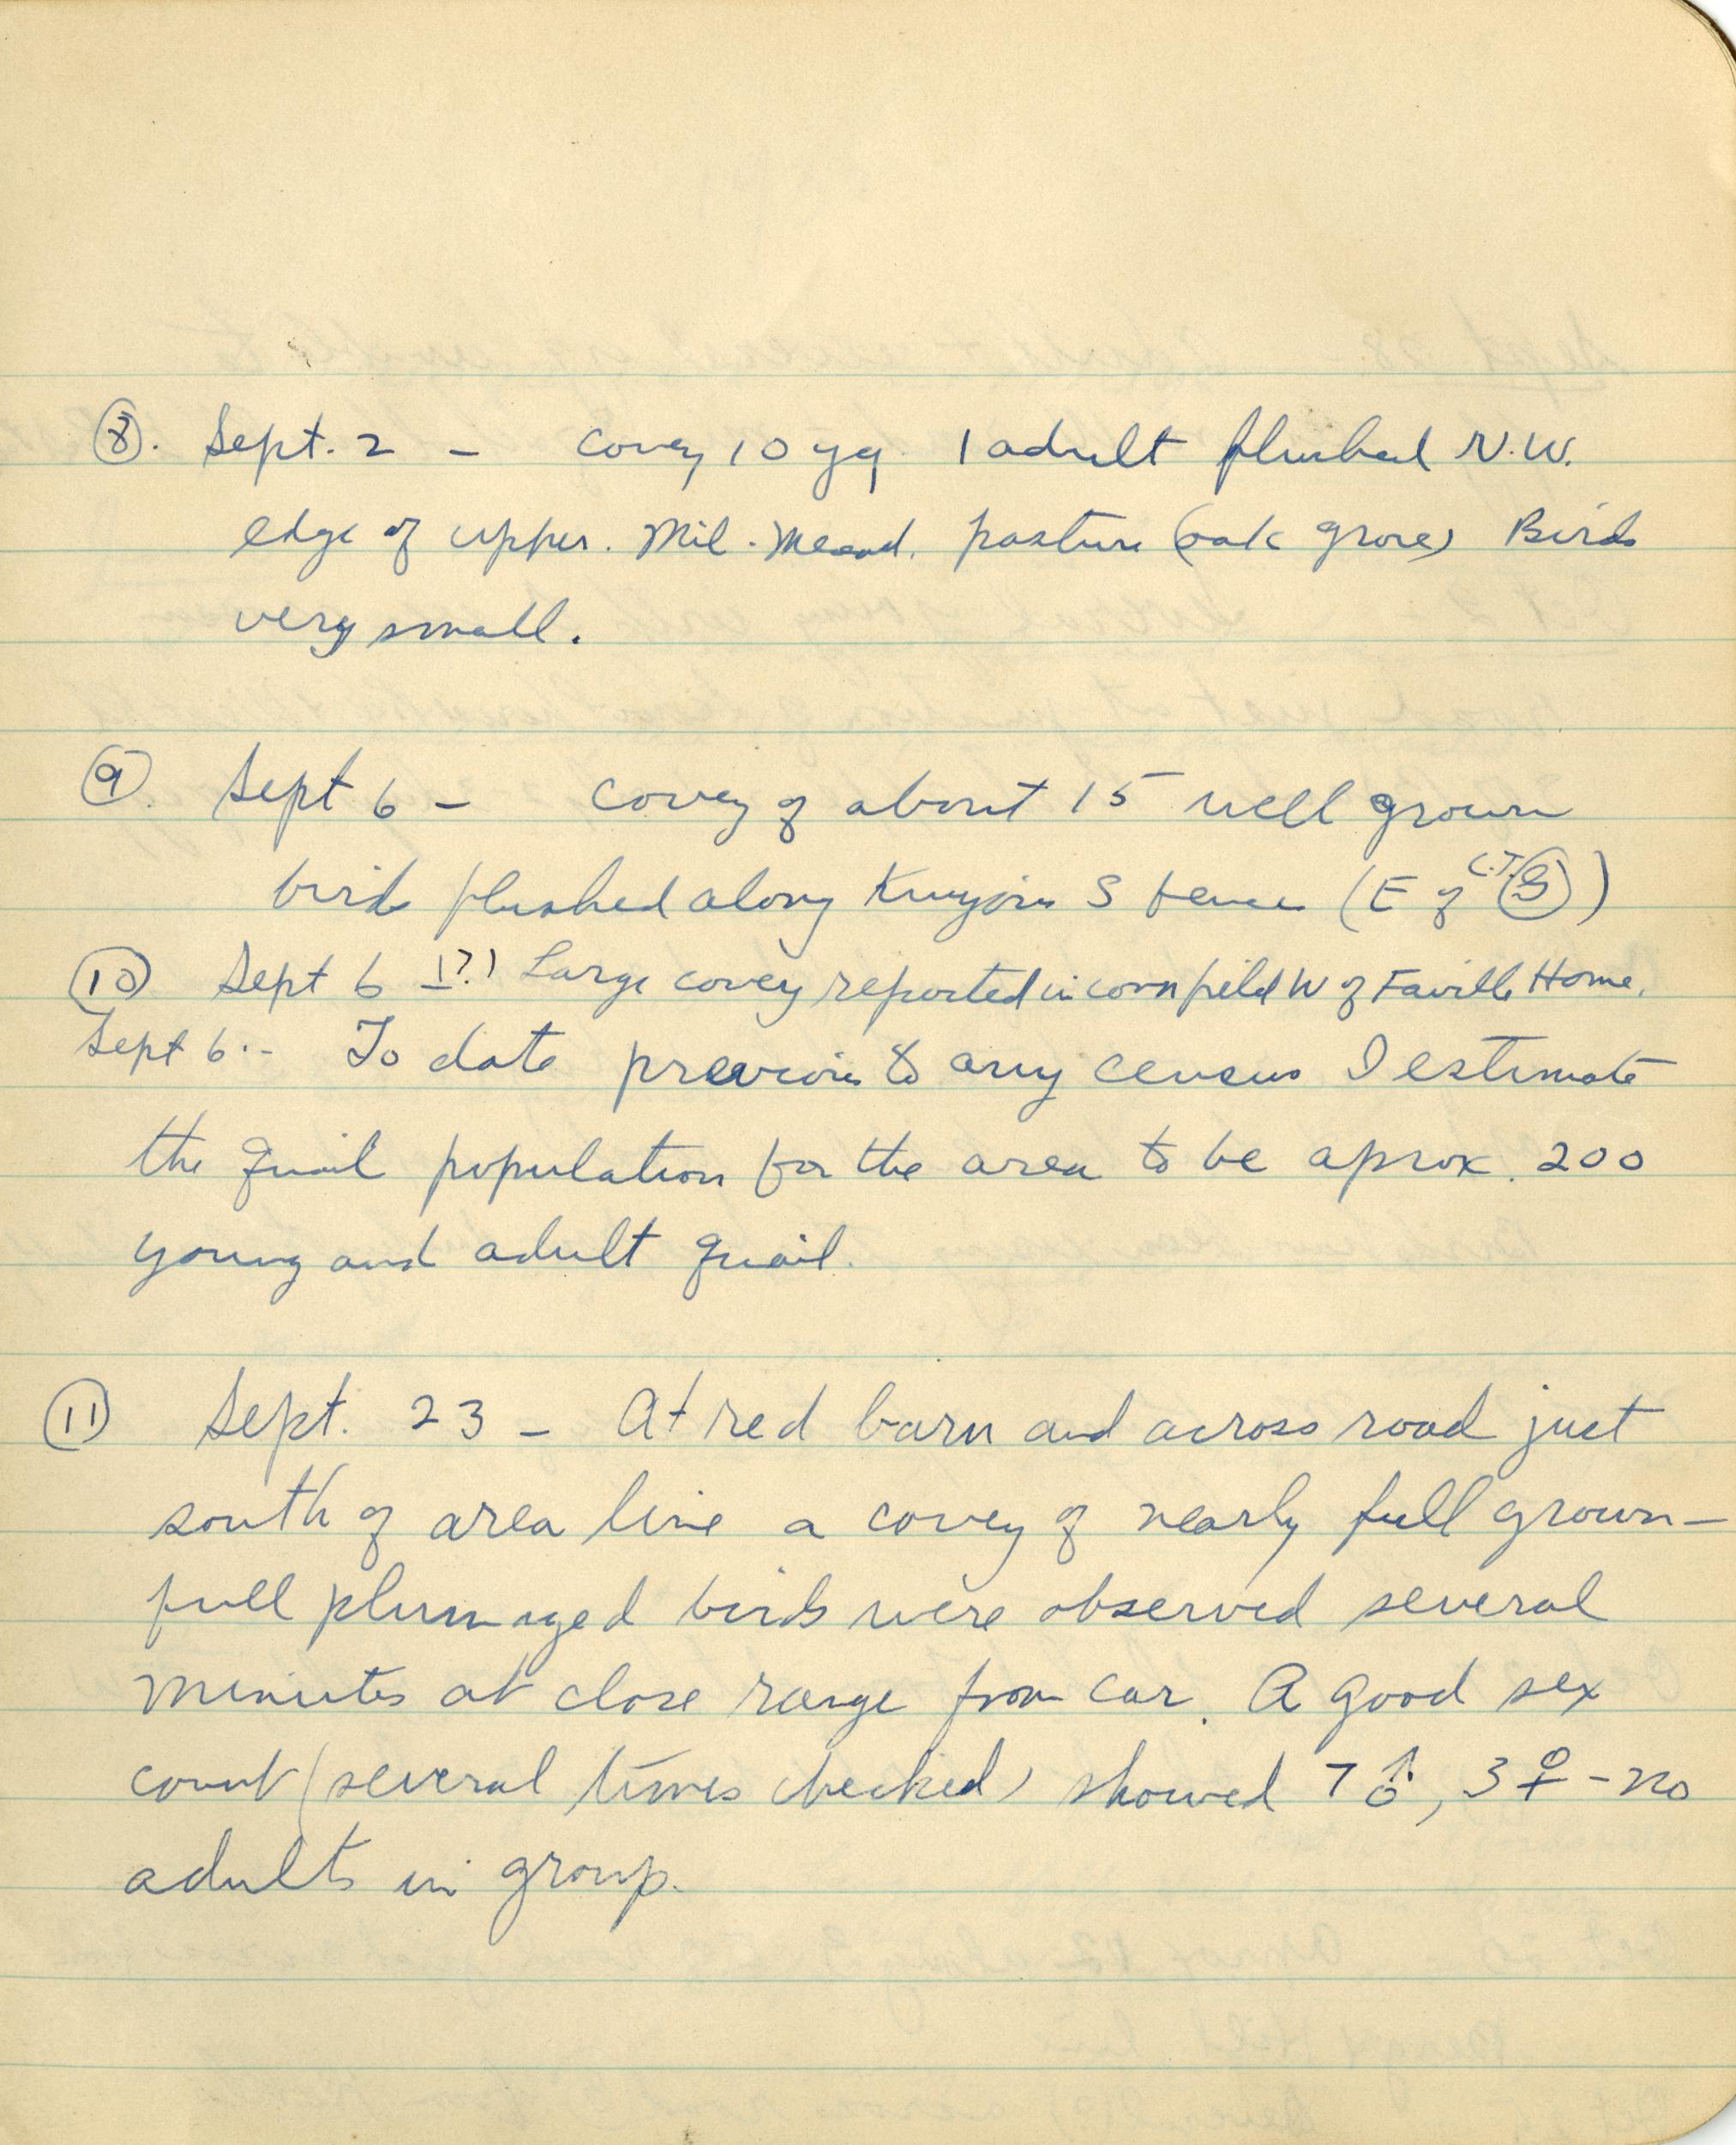 (8). Sept. 2 - covey 10 yg 1 adult flushed N.W.
edge of upper. Mil. Mead. pasture (oak grove) Birds
very small.
(9). Sept 6 - covey of about 15 well grown
birds flushed along S fence (E of C.T. (S))
(10) Sept 6 (?) Large covey reported in corn field W of Faville Home.
Sept 6.- To date previous to any census I estimate
the quail population for the area to be aprox. 200
young and adult quail.
(11) Sept. 23 - At red barn and across road just
south of area line a covey of nearly full grown-
full plumaged birds were observed several
minutes at close range from car. A good sex
count (several times checked) showed 7 ♂, 3 ♀ - no
adults in group.